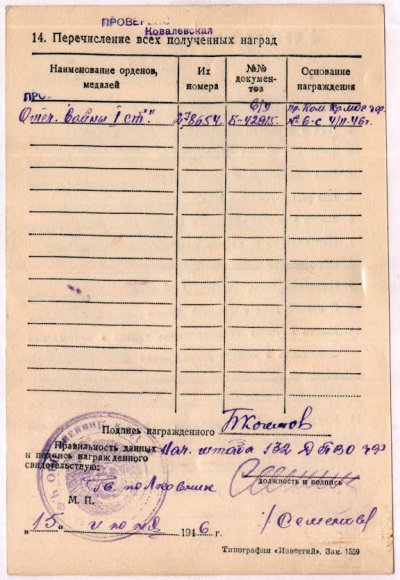 ПРОВЕРЕНО
Ковалевская
14. Перечисление всех полученных наград
Наименование орденов, медалей
Их номера
№№ документов
Основание награждения
ПРО
Отеч. войны I ст."
278654
б/н Б-42915.
пр. Ком.
№ 6-с 4/II-46г.
Подпись награжденного
Правильность данных Нач. штаба 132 ДПВО
и подпись награжденного
свидетельствую:
должность и подпись
Гв. полковник
М. П.
/Семенов/
"15" июня 1946 г.
Типография «Известий». Зак. 1559